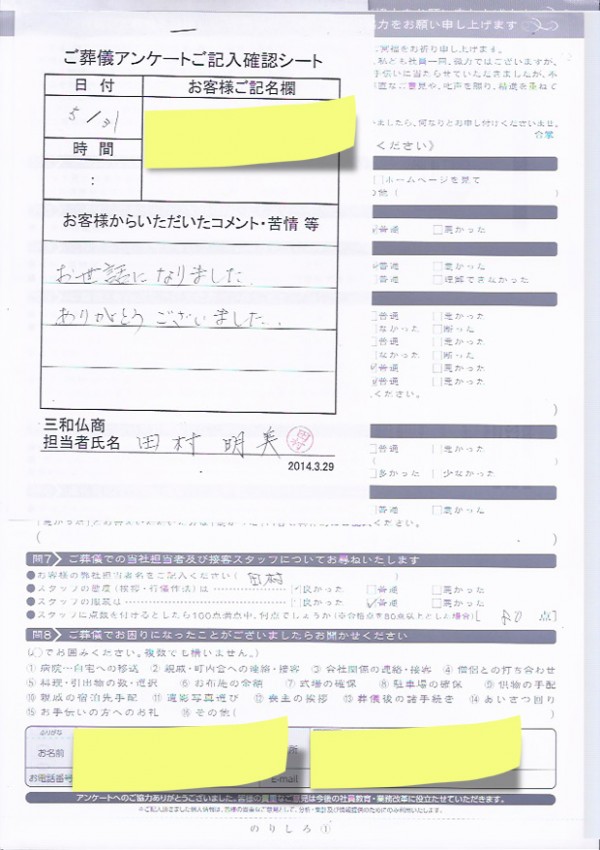 協力をお願い申し上げます
ご葬儀アンケートご記入確認シート
日付
お客様ご記名欄
5/31
時間
:
お客様からいただいたコメント・苦情 等
お世話になりました.
ありがとうございました.
三和仏商
担当者氏名 田村 明美
2014.3.29
ください》
ホームページを見て
の他(
普通 悪かった
普通 悪かった
普通 理解できなかった
普通 悪かった
なかった 断った
普通 悪かった
なかった 断った
普通 悪かった
普通 悪かった
ください。
普通 悪かった
多かった 少なかった
普通 悪かった
問7 ご葬儀での当社担当者及び接客スタッフについてお尋ねいたします
●お客様の弊社担当者名をご記入ください( 田村 )
●スタッフの態度(挨拶・行儀作法)は 良かった 普通 悪かった
●スタッフの服装は 良かった 普通 悪かった
●スタッフに点数を付けるとしたら100点満点中、何点でしょうか(※合格点を80点以上とした場合)[ 80 点]
問8 ご葬儀でお困りになったことがございましたらお聞かせください
(○でお囲みください。複数でも構いません。)
①病院…自宅への移送 ②親戚・町内会への連絡・接客 ③会社関係の連絡・接客 ④僧侶との打ち合わせ
⑤料理・引出物の数・選択 ⑥お布施の金額 ⑦式場の確保 ⑧駐車場の確保 ⑨供物の手配
⑩親戚の宿泊先手配 ⑪遺影写真選び ⑫喪主の挨拶 ⑬葬儀後の諸手続き ⑭あいさつ回り
⑮お手伝いの方へのお礼 ⑯その他( )
ふりがな
お名前
所
お電話番号
E-mail
アンケートへのご協力ありがとうございました。お客様の貴重なご意見は今後の社員教育・業務改革に役立たせていただきます。
のりしろ①